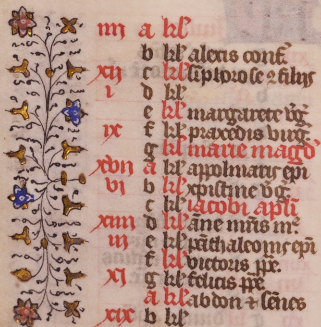 iiii a kl'
b kl' alexis conf.
xii c kl'
i d kl'
e kl' margarete v'g'
ix f kl' praxedis virg'
g kl' marie magd'
xvii a kl' appolinaris ep'i
vi b kl' xpistine v'g'
c kl' iacobi apl'i
xiiii d kl' āne
iii e kl' ep'i
f kl' victoris pe.
xi g kl' felicis pe
a kl' abdon z senes
xix b kl'